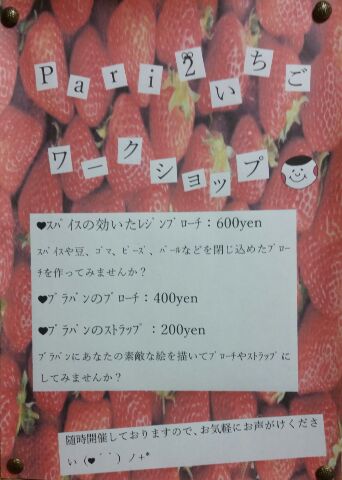 Pari2いちご
ワークショップ
♥ｽﾊﾟｲｽの効いたﾚｼﾞﾝﾌﾞﾛｰﾁ：600yen
ｽﾊﾟｲｽや豆、ｺﾞﾏ、ﾋﾞｰｽﾞ、ﾊﾟｰﾙなどを閉じ込めたﾌﾞﾛｰ
ﾁを作ってみませんか？
♥ﾌﾟﾗﾊﾞﾝのﾌﾞﾛｰﾁ：400yen
♥ﾌﾟﾗﾊﾞﾝのｽﾄﾗｯﾌﾟ：200yen
ﾌﾟﾗﾊﾞﾝにあなたの素敵な絵を描いてﾌﾞﾛｰﾁやｽﾄﾗｯﾌﾟに
してみませんか？
随時開催しておりますので、お気軽にお声がけくださ
い (♥´｀) ノ+*